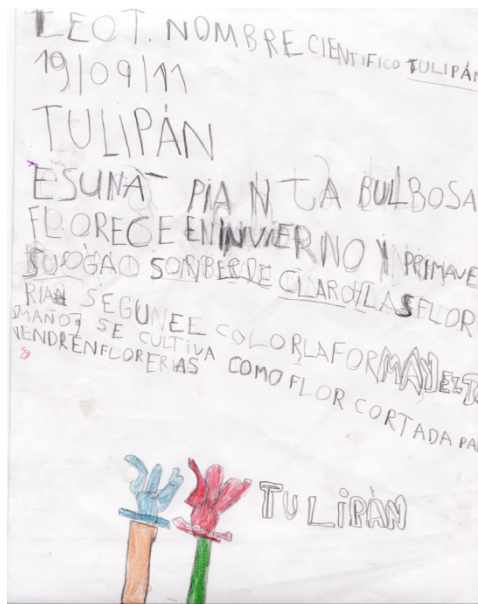 LEO T. NOMBRE CIENTIFICO TULIPÁN
19/09/11
TULIPÁN
ES UNA PIANTA BULBOSA
FLORECE EN INVIERNO Y PRIMAVE
SON BERDE CLARO LAS FLOR
RIAN SEGUN EE COLOR LA FORMA Y EL TA
MAÑO SE CULTIVA COMO FLOR CORTADA PA
VENDR EN FLORERIAS
TULIPÀN